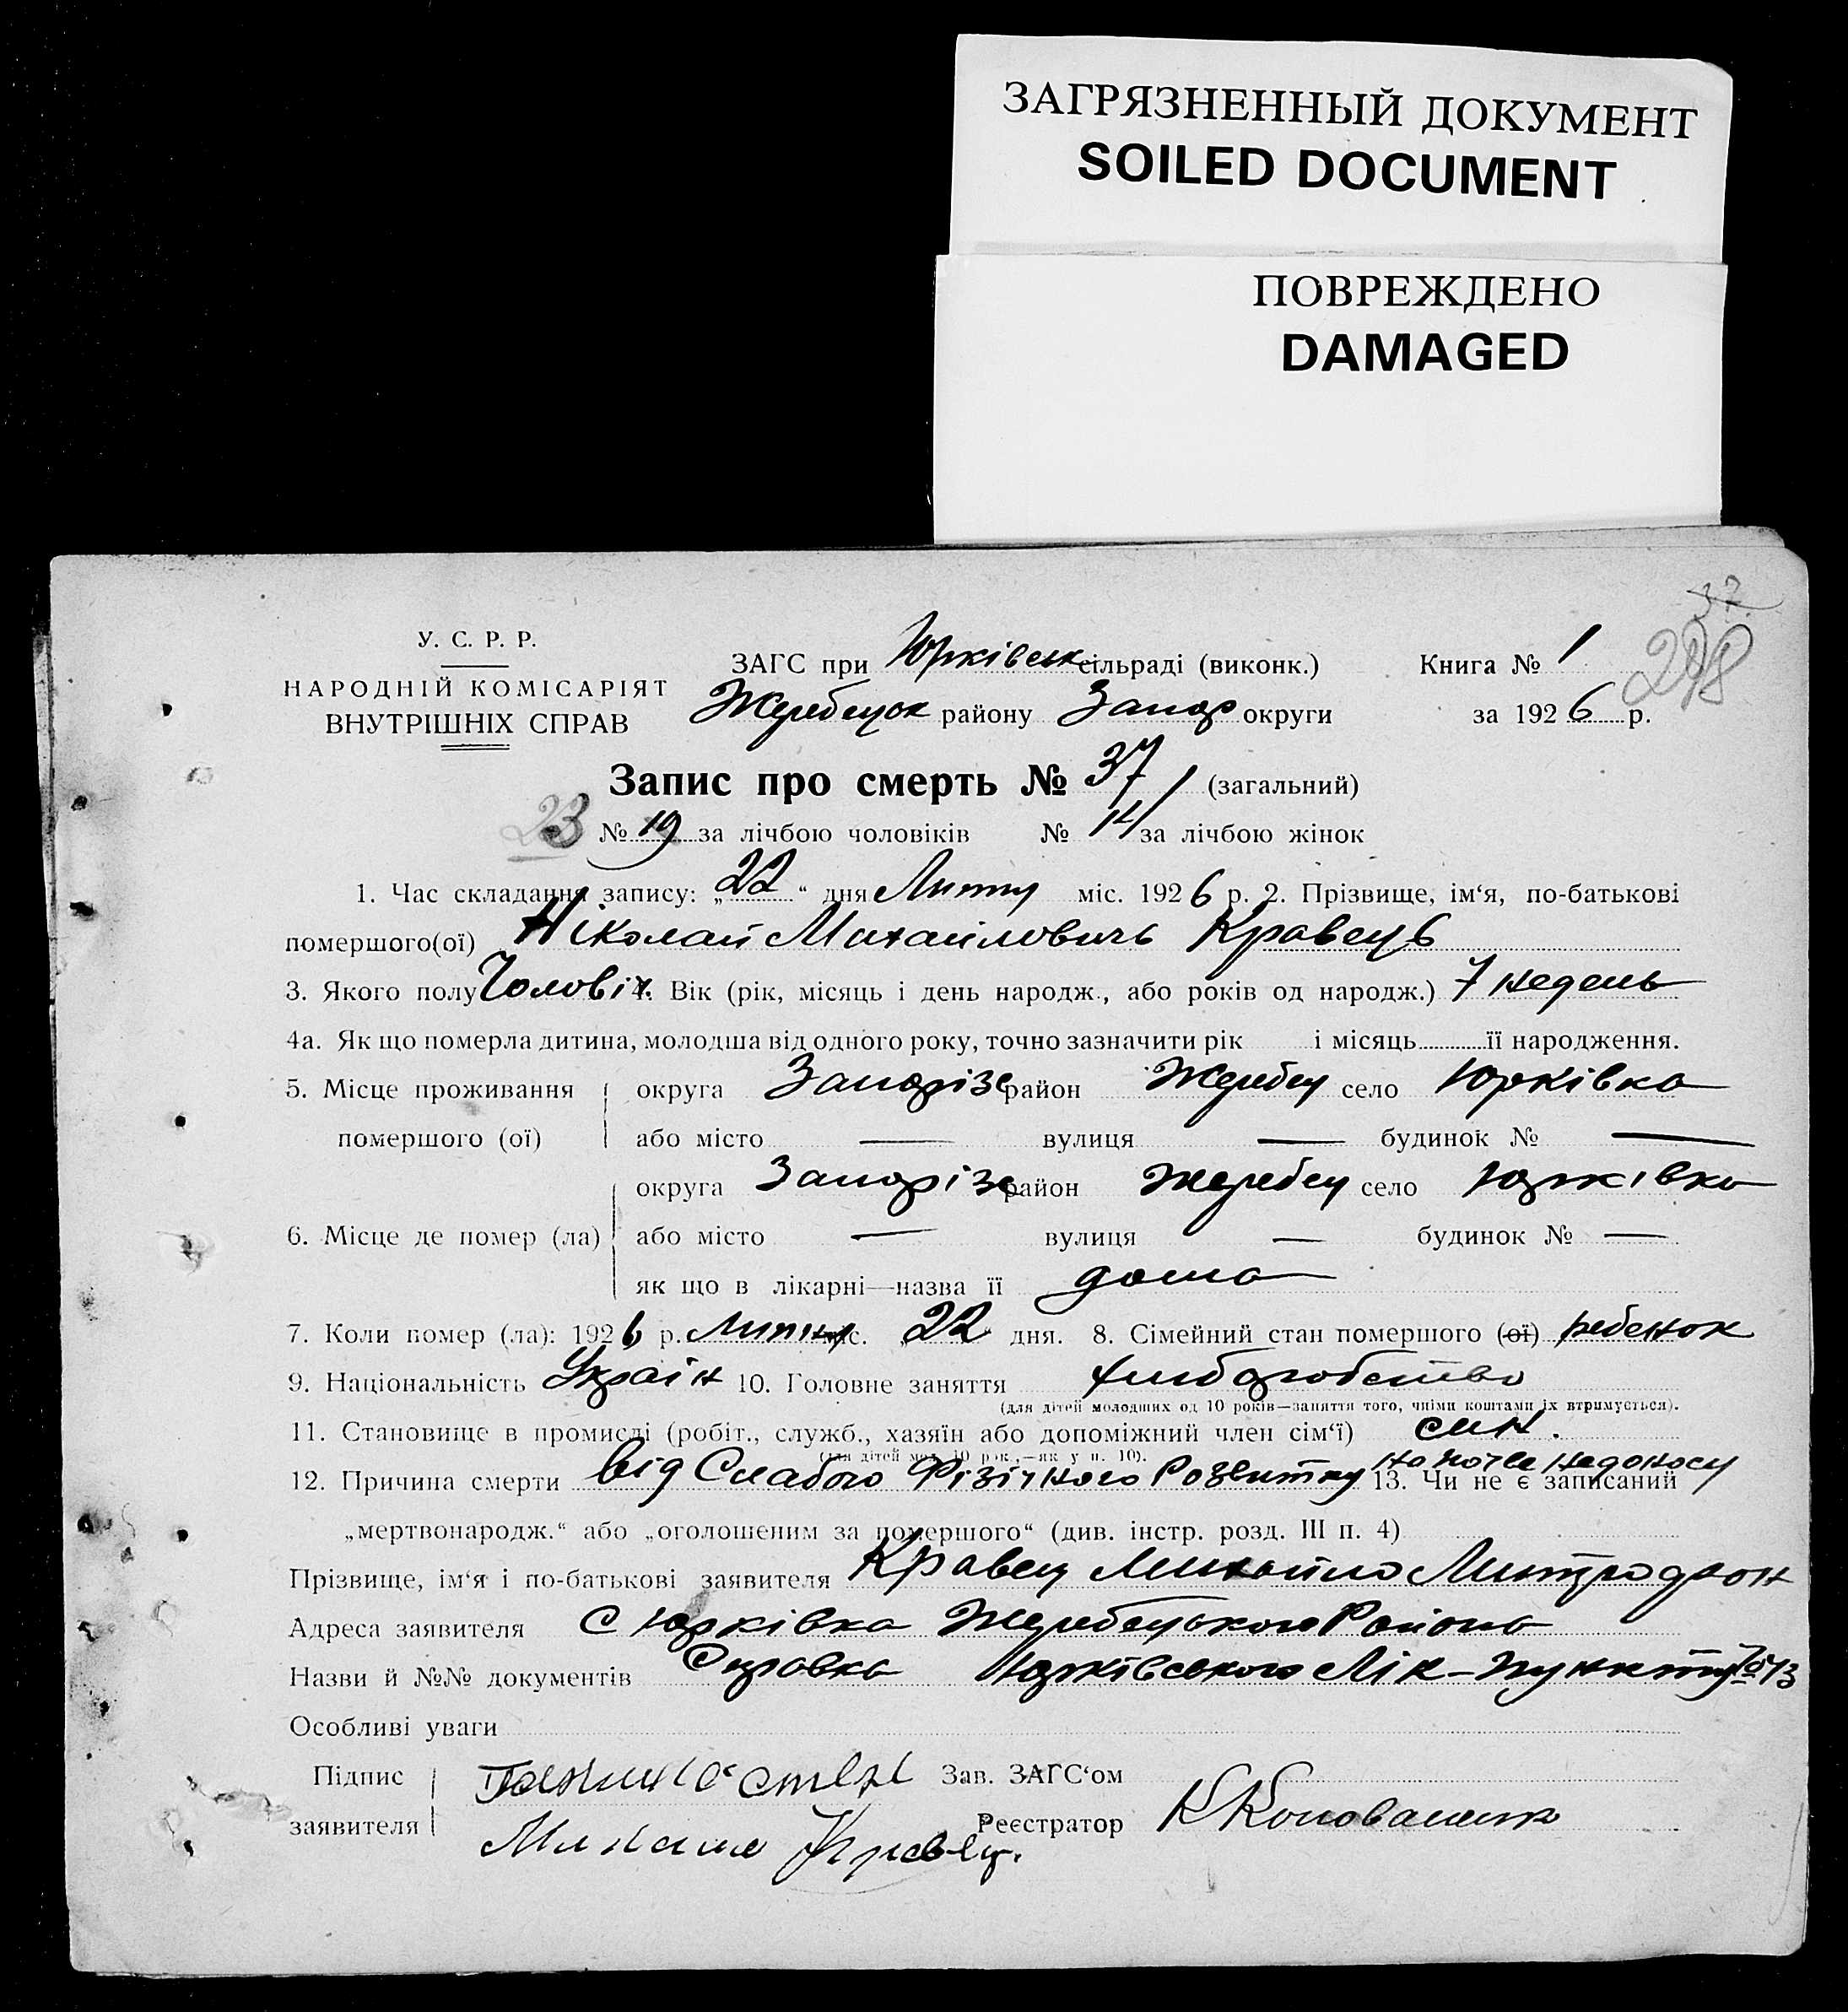 ЗАГРЯЗНЕННЫЙ ДОКУМЕНТ
SOILED DOCUMENT
ПОВРЕЖДЕНО
DAMAGED
37.
298
У. С. Р. Р.
НАРОДНІЙ КОМІСАРІЯТ
ВНУТРІШНІХ СПРАВ
ЗАГС при Юрківськ сільраді (виконк.) Книга № 1
Жеребецьк району Запор округи за 1926 р.
Запис про смерть № 37 (загальний)
23 № 19 за лічбою чоловіків № за лічбою жінок
1. Час складання запису: „22“ дня Лютну міс. 1926 р. 2. Прізвище, ім'я, по-батькові
помершого(ої) Ніколай Михайловичь Кравець
3. Якого полу Чоловіч 4. Вік (рік, місяць і день народж., або років од народж.) 7 недель
4а. Як що померла дитина, молодша від одного року, точно зазначити рік і місяць її народження.
5. Місце проживання помершого (ої) округа Запоріз район Жеребец село Юрківка
або місто — вулиця — будинок № —
6. Місце де помер (ла) округа Запоріз район Жеребец село Юрківка
або місто — вулиця — будинок № —
як що в лікарні—назва її дома
7. Коли помер (ла): 1926 р. міс. „22 дня. 8. Сімейний стан помершого (ої) ребенок
9. Національність Україн 10. Головне заняття хліборобство
(для дітей молодших од 10 років—заняття того, чиїми коштами їх втримується).
11. Становище в промислі (робіт., служб., хазяїн або допоміжний член сім'ї) син.
(для дітей мол. 10 рок.,—як у п. 10).
12. Причина смерти від Слабого Фізічного Розвитку на почве недоносу 13. Чи не є записаний
„мертвонародж.“ або „оголошеним за помершого“ (див. інстр. розд. III п. 4)
Прізвище, ім'я і по-батькові заявителя Кравец Михайло Митрофон
Адреса заявителя с Юрківка Жеребецького Району
Назви й №№ документів Справка Юрківського Лік-пункту
Особливі уваги
Підпис заявителя Зав. ЗАГС'ом
Михаил Кравец. Реєстратор К Коноваленко